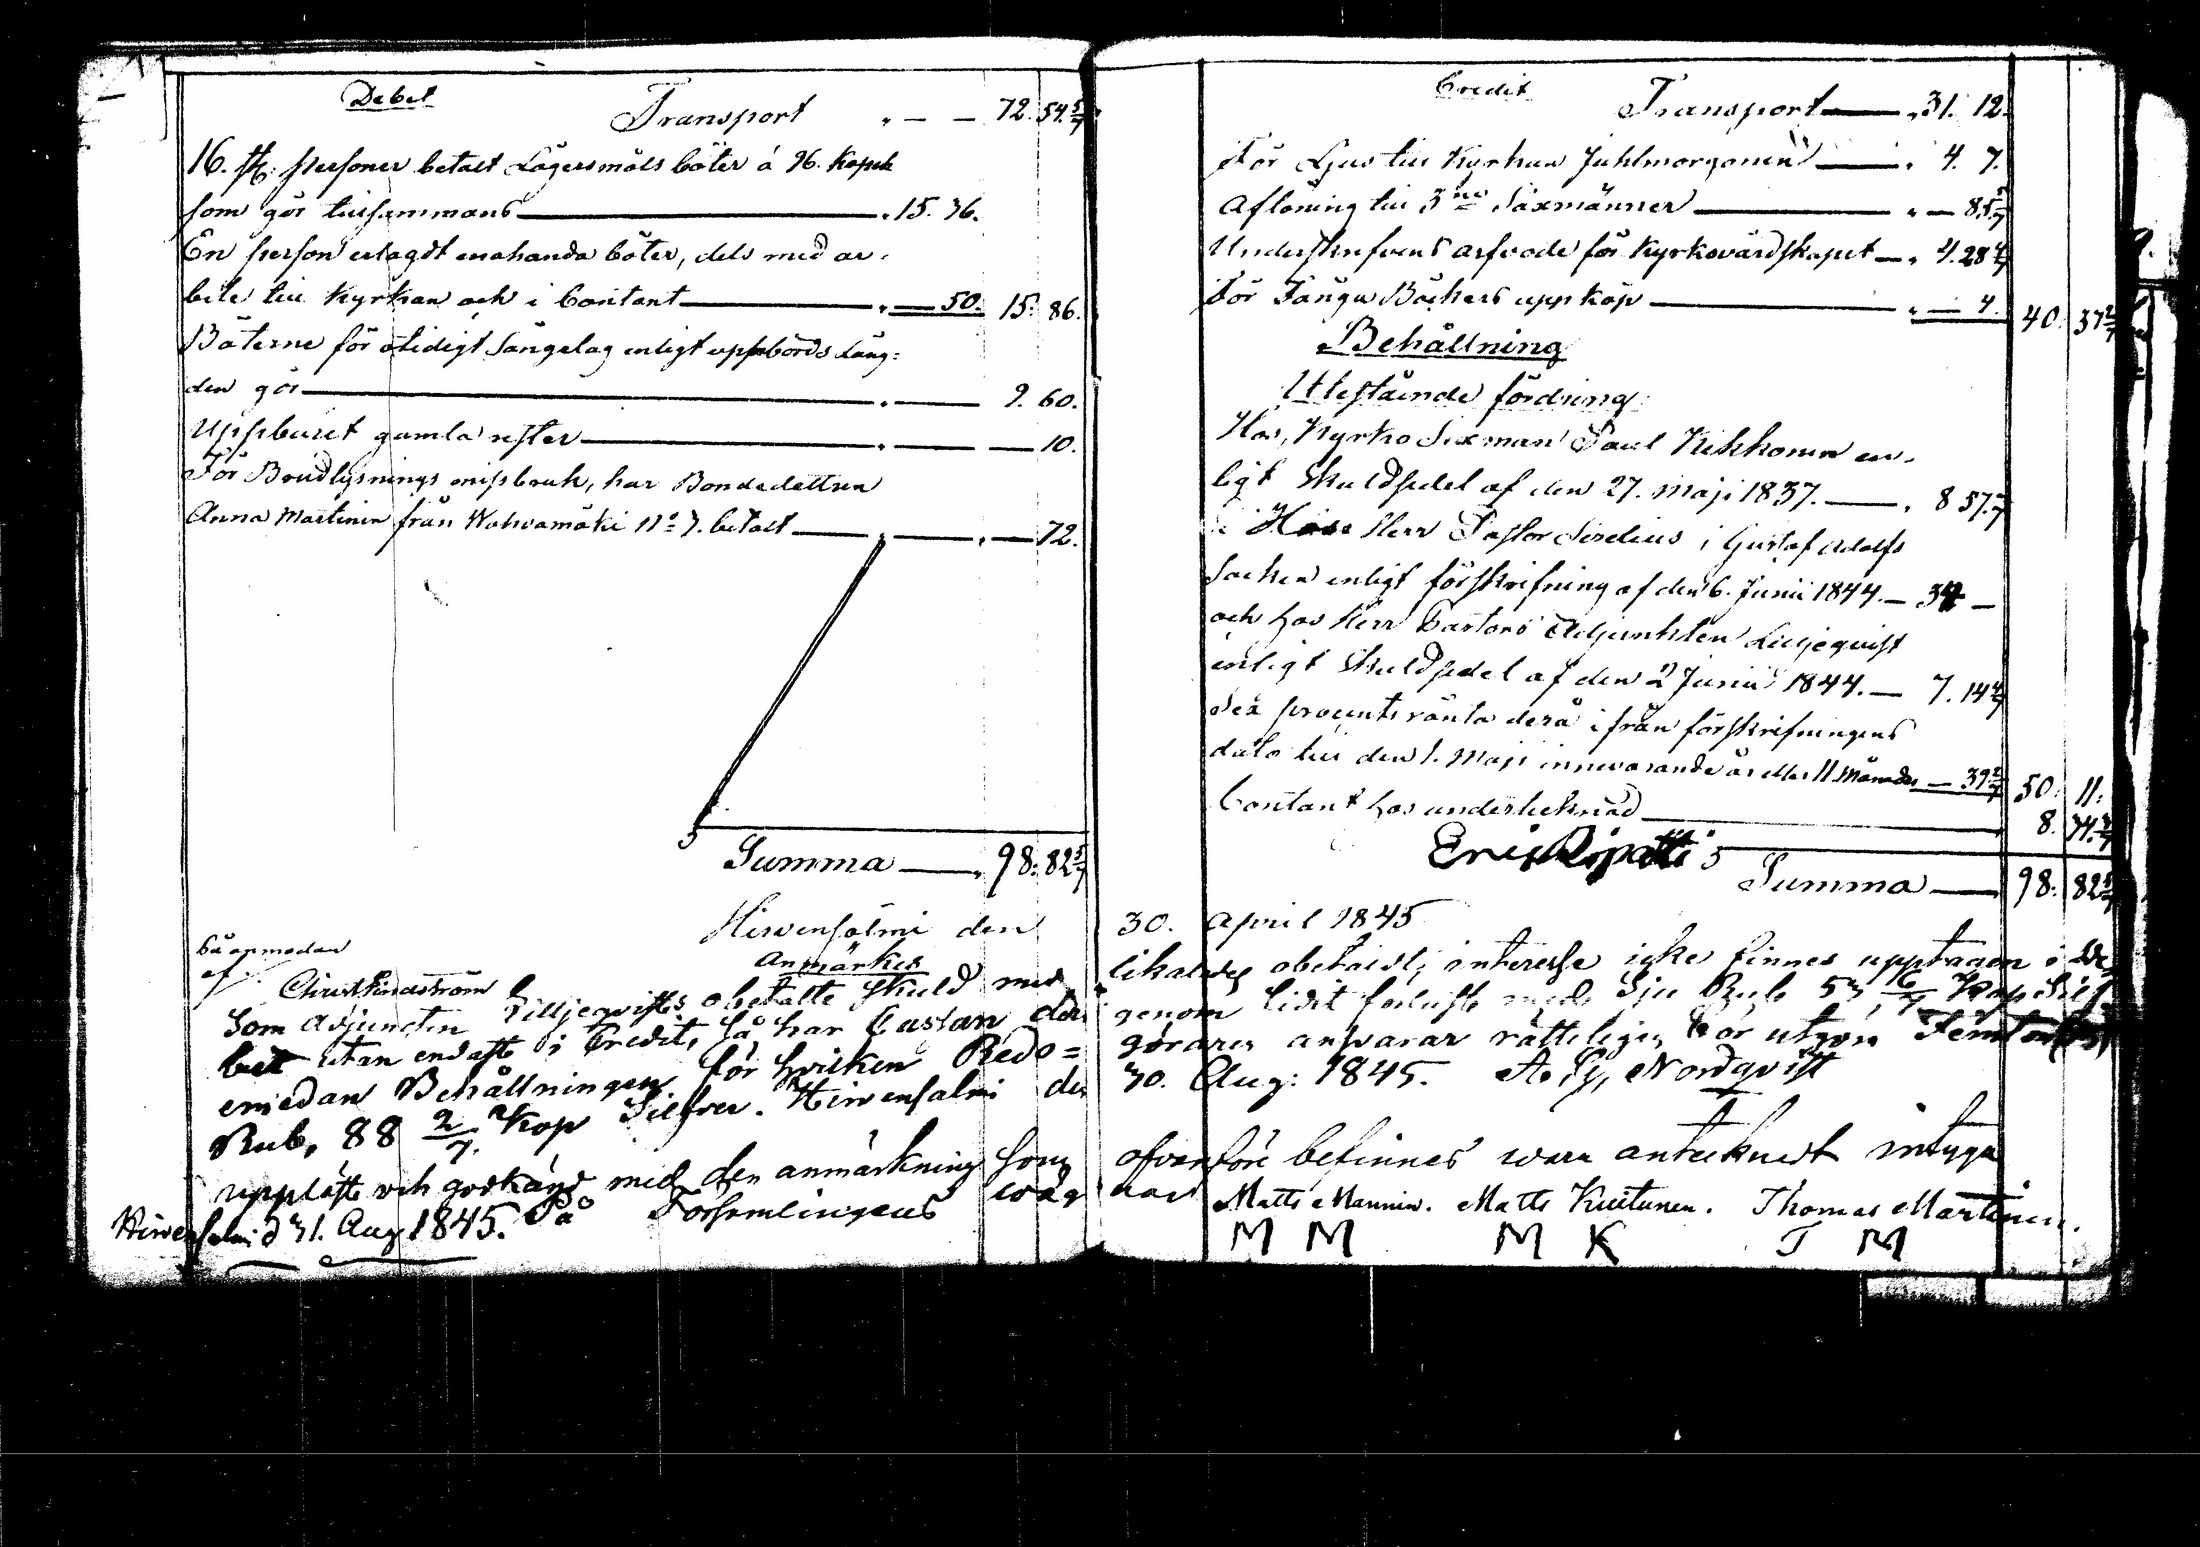 Debet
Transport " — — 72. 54 5/7
16. st. personer betalt Lägersmåls böter á 96. Kopek
som gör tillsammans — " 15. 36.
En person erlagdt enahanda böter, dels med ar-
bete till Kyrkan och i Contant — " — 50. 15. 86.
Böterne för otidigt Sängelag enligt uppbörds Läng=
den gör — " — 9. 60.
Uppburit gamla rester — " — — 10.
För Brudlysnings missbruk, har Bondedottren
Anna Martinen från Wahvamäki No 7. betalt — " — " — 72.
Summa — " 98. 82 5/7
Credit
Transport — " 31. 12.
För Ljus till Kyrkan Juhlmorgonen — " 4. 7.
Aflöning till 3ne Sexmänner — " — 85 5/7
Underskrefvens arfvode för Kyrkovärdskapet — " 4. 28 4/7
För Tångu Böckers uppköp — " — 4. 40. 37 2/7
Behållning
Utestående fördring
Hos, Kyrko Sexman Paul Kikkonen en-
ligt Skuldsedel af den 27. Maji 1837. — " 8 57 1/7
Hos Herr Pastor Sirelius i Gustaf Adolfs
Socken enligt förskrifning af den 6. Junii 1844. — 34 —
och hos Herr Pastors Adjunkten Liljeqvist
enligt Skuldsedel af den 2 Junii 1844. — 7. 14 2/7
Sex procents ränta derå ifrån förskrifningens
dato till den 1. Maji innevarande år eller 11 Månader — 39 2/7 50. 11.
Contant hos undertecknad — 8. 34 3/7
Eric Ripatti
Summa — 98. 82 5/7
Hirvensalmi den 30. April 1845
På anmodan
af
Christ Lindström
Anmärkes
Som Adjuncten Lilljeqvists obetalte skuld med likaledes obetald interesse icke finnes upptagen i De=
bet utan endast i Credit, så har Cassan der genom lidit förlust med Sju Rub 53 4/7 Kop Silf.
emedan Behållningen för hvilken Redo= göraren ansvarar rätteligen bör utgöra Femton (15)
Rub, 88 2/7 Kop Silfver. Hirvensalmi den 30. Aug: 1845. A. G. Nordqvist
uppläste och godkänd med den anmärkning som ofvanföre befinnes vara antecknadt intyga
Hirvensalmi d 31. Aug 1845. På Församlingens vägnar Matts Manninen. Matts Kuitunen. Thomas Martinen.
M M M K T M